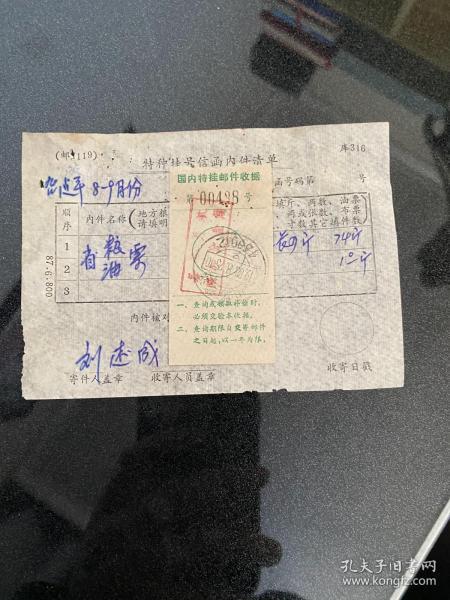 (邮1119)
特种挂号信函内件清单
库316
8-9月份
函号码第 号
国内特挂邮件收据
第 00488 号
顺序
内件名称
地方粮
请填明
填斤、两数、油票
两或张数、布票
寸数其它填件数
1
2
3
省 粮油票
74斤
87.6.800
一、查询或领取补偿时,
必须交验本收据。
二、查询期限自交寄邮件
之日起,以一年为限。
内件核对
刘述成
寄件人盖章
收寄人员盖章
收寄日戳
孔夫子旧书网
www.kongfz.com